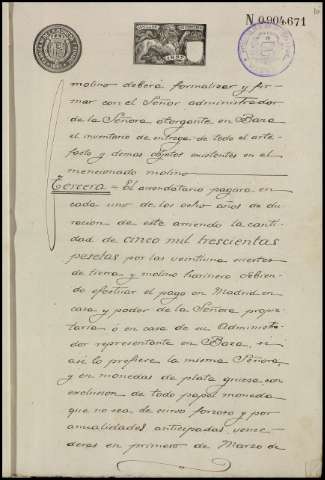 N 0.904.671
molino deberá formalizar y fir-
mar con el Señor administrador
de la Señora otorgante en Baza
el inventario de entrega de todo el arte-
facto y demas objetos existentes en el
mencionado molino
Tercera = El arrendatario pagará en
cada uno de los ocho años de du-
racion de este arriendo la canti-
dad de cinco mil trescientas
pesetas por las veintiuna suertes
de tierra y molino harinero debien-
do efectuar el pago en Madrid en
casa y poder de la Señora propie-
taria ó en casa de su Adminis-
dor representante en Baza, si
asi lo prefiere la misma Señora,
y en monedas de plata gruesa con
exclusion de todo papel moneda
que no sea de curso forzoso y por
anualidades anticipadas, vence-
deras en primero de Marzo de